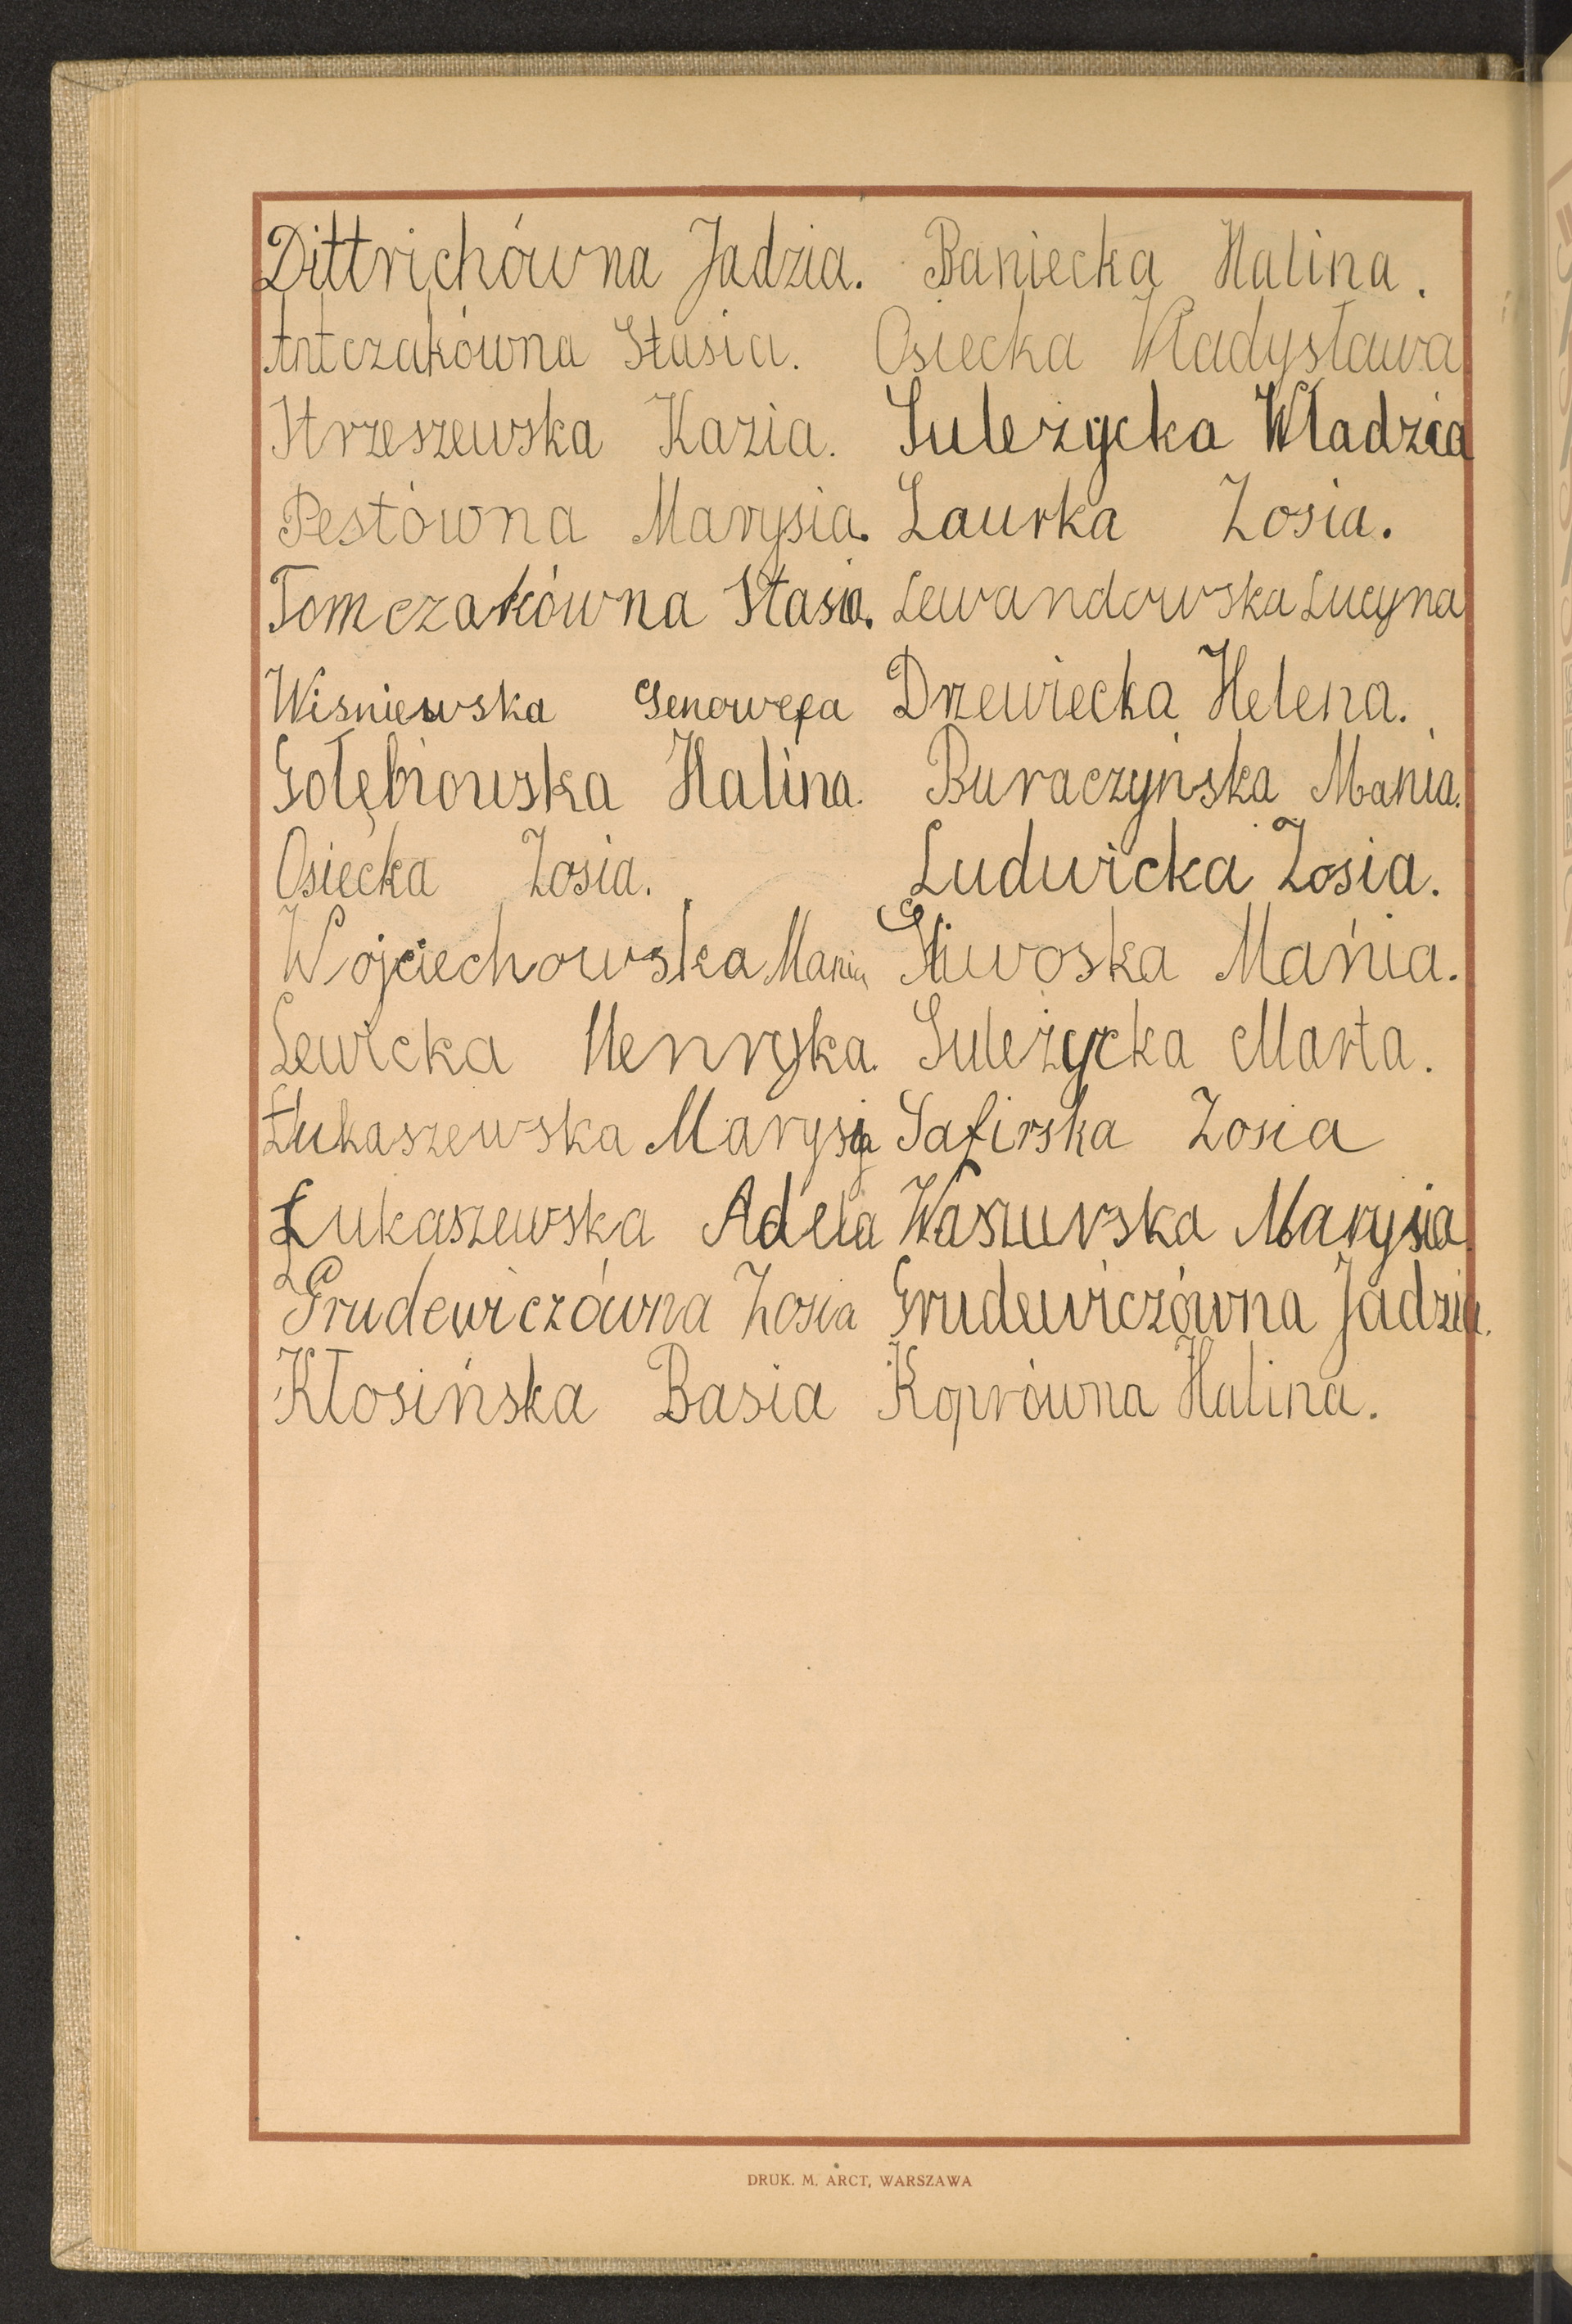 Dittrichówna Jadzia. Baniecka Halina.
Antczakówna Stasia. Osiecka Władysława
Strzeszewska Kazia. Suleżycka Władzia
Pestówna Marysia. Laurka Zosia.
Tomczakówna Stasia. Lewandowska Lucyna
Wiśniewska Genowefa Drzewiecka Helena.
Gołębiowska Halina. Buraczyńska Mania.
Osiecka Zosia. Ludwicka Zosia.
Wojciechowska Mania Mańia.
Lewicka Henryka. Suleżycka Marta.
Łukaszewska Marysia Safirska Zosia
Łukaszewska Adela Waszurska Marysia
Grudewiczówna Zosia Grudewiczówna Jadzia.
Kłosińska Basia Koprówna Halina.
DRUK. M. ARCT, WARSZAWA